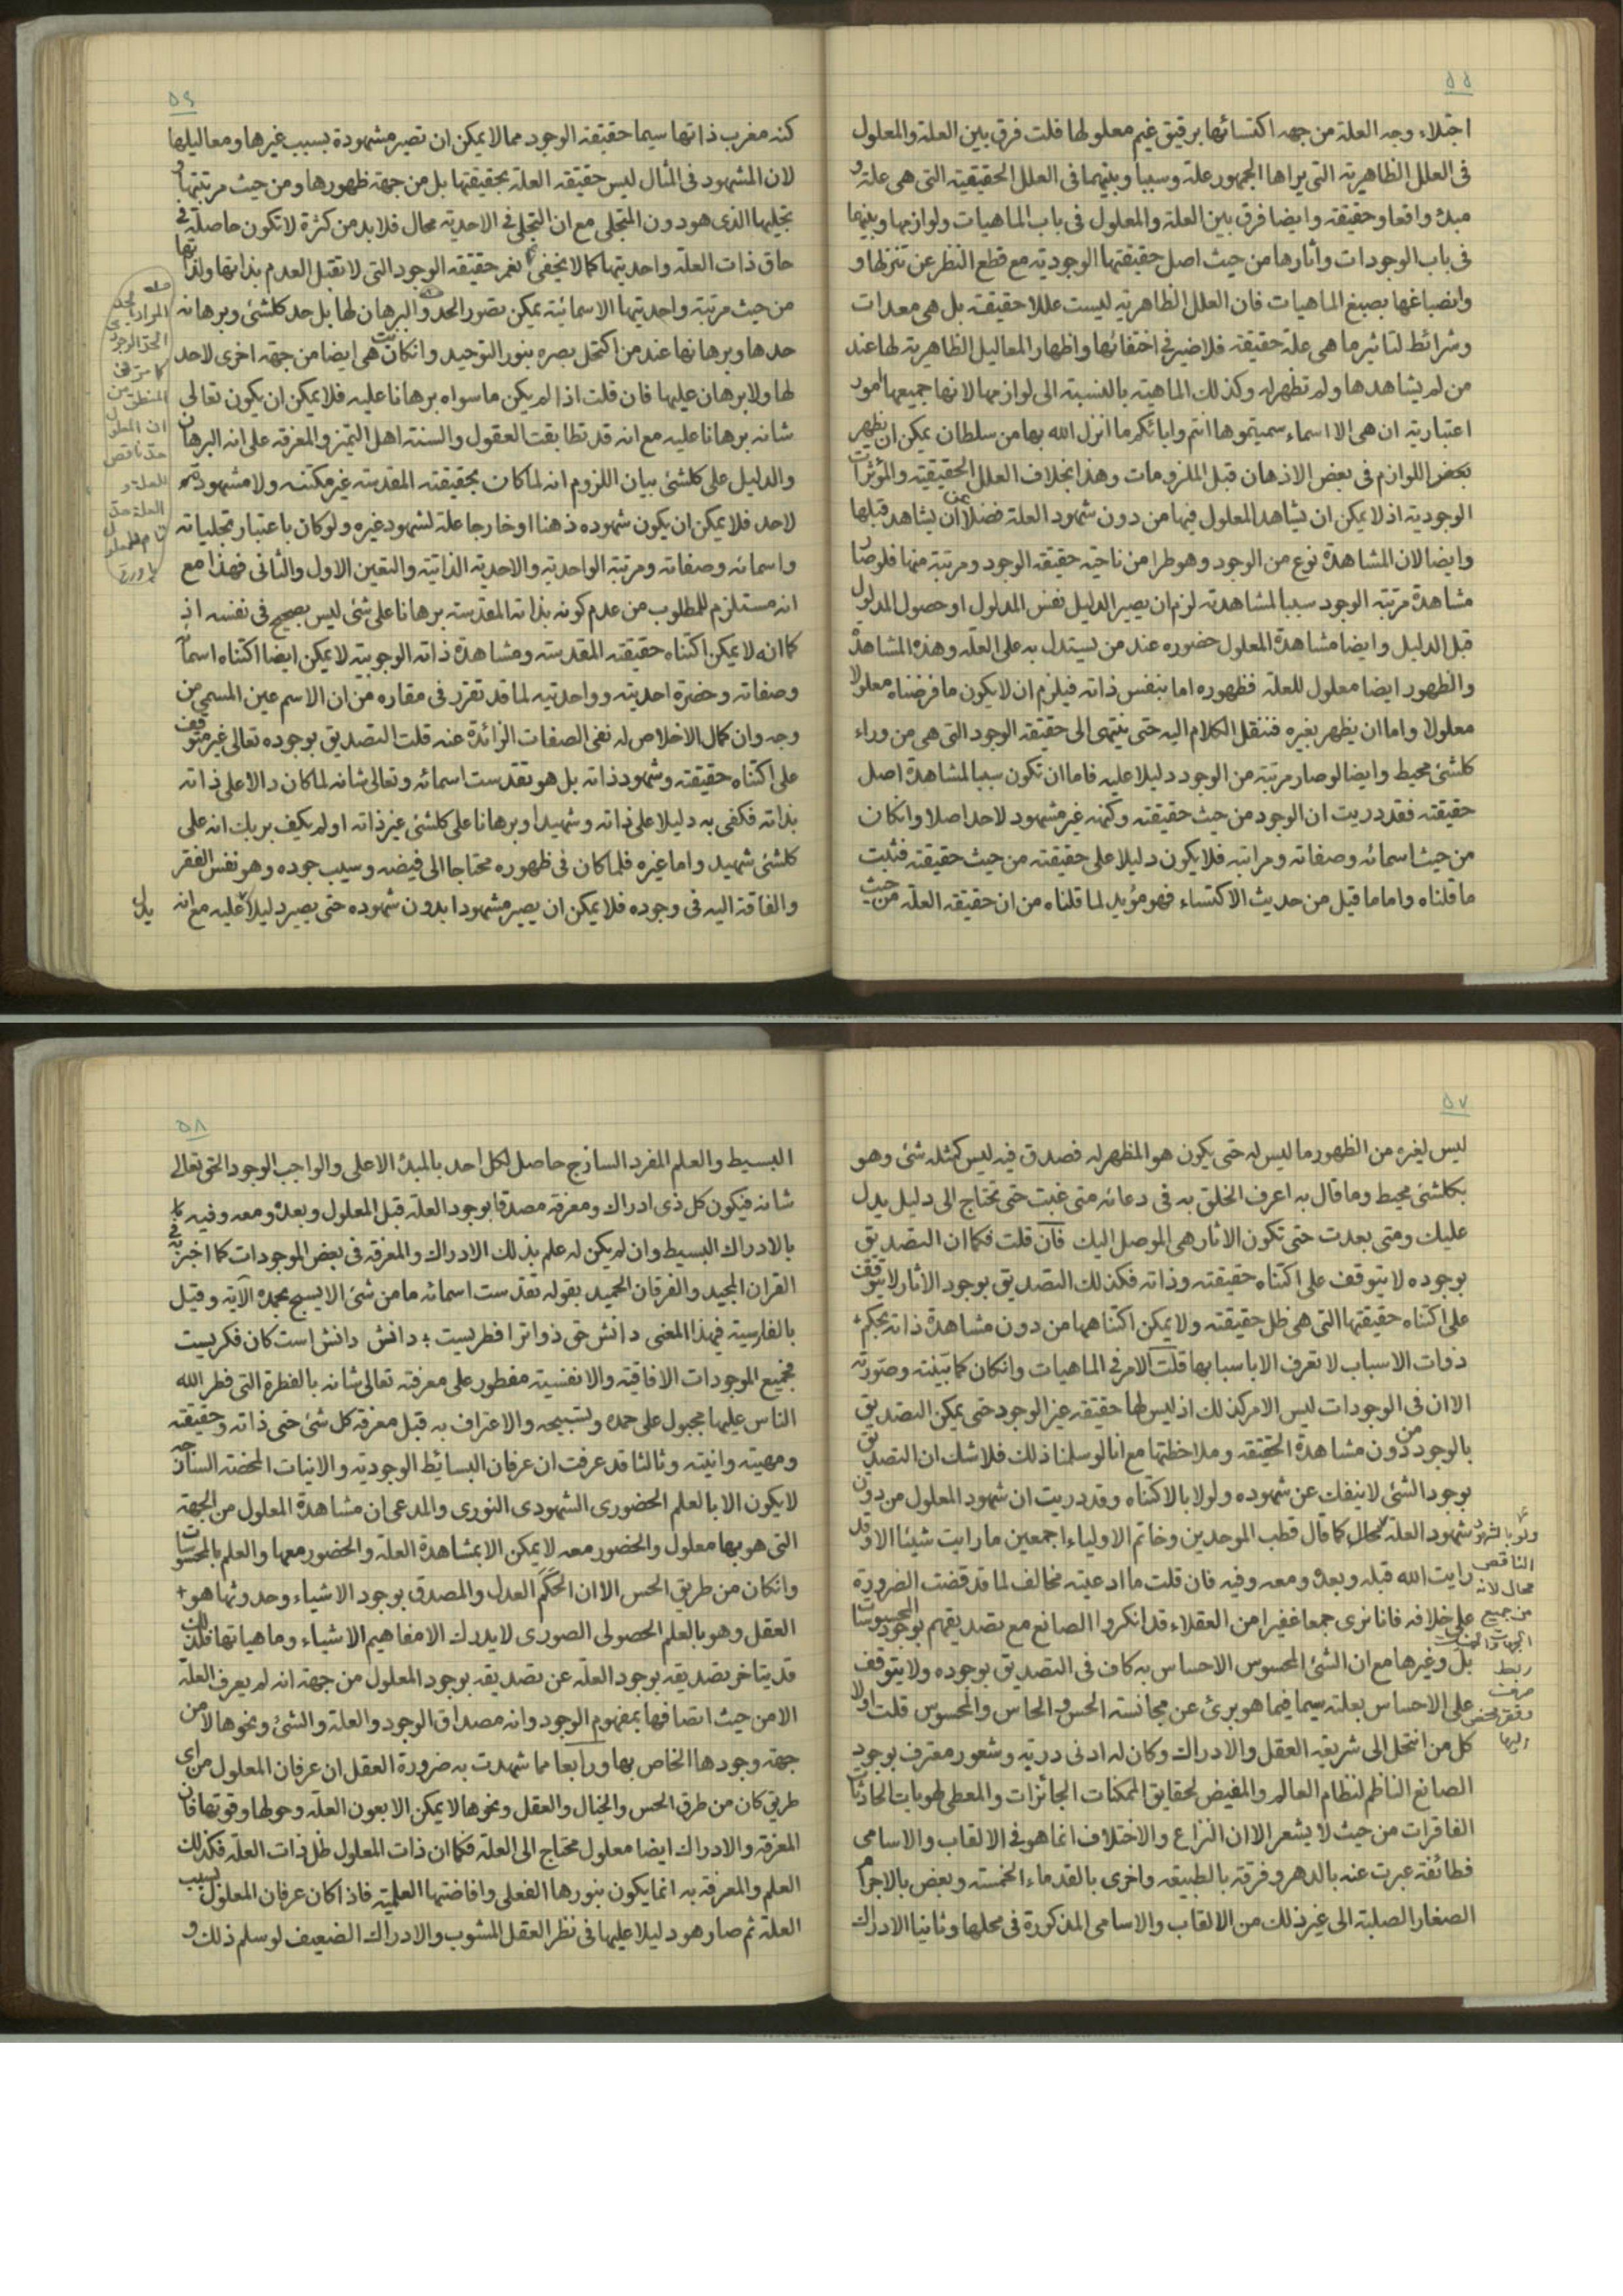 ۵۵
اجتلاء وجه العلة من جهه اكتسائها برقيق غيم معلولها قلت فرق بين العلة والمعلول
فى العلل الظاهرية التى يراها الجمهور علة وسببا وبينهما فى العلل الحقيقية التى هى علة و
مبدء واقعا وحقيقة وايضا فرق بين العلة والمعلول فى باب الماهيات ولوازمها وبينهما
فى باب الوجودات وآثارها من حيث اصل حقيقتها الوجودية مع قطع النظر عن تنزلها و
وانصباغها بصبغ الماهيات فان العلل الظاهرية ليست عللا حقيقة بل هى معدات
وشرائط لتاثير ما هى علة حقيقة فلا ضير فى اختفائها واظهار المعاليل الظاهرية لها عند
من لم يشاهدها ولم تظهر له وكذلك الماهية بالنسبة الى لوازمها لانها جميعها امور
اعتبارية ان هى الا اسماء سميتموها انتم وابائكم ما انزل الله بها من سلطان يمكن ان يظهر
بعض اللوازم فى بعض الاذهان قبل الملزومات وهذا بخلاف العلل الحقيقية والمؤثرات
الوجودية اذ لا يمكن ان يشاهد المعلول فيها من دون شهود العلة فضلا عن ان يشاهد قبلها
وايضا لان المشاهدة نوع من الوجود وهو طرا من ناحية حقيقة الوجود ومرتبة منها فلو صار
مشاهدة مرتبة الوجود سببا لمشاهدته لزم ان يصير الدليل نفس المدلول او حصول المدلول
قبل الدليل وايضا مشاهدة المعلول حضوره عند من يستدل به على العلة وهذه المشاهدة
والظهور ايضا معلول للعلة فظهوره اما بنفس ذاته فيلزم ان لا يكون ما فرضناه معلولا
معلولا واما ان يظهر بغيره فننقل الكلام اليه حتى ينتهى الى حقيقة الوجود التى هى من وراء
كلشئ محيط وايضا لو صار مرتبة من الوجود دليلا عليه فاما ان تكون سببا لمشاهدة اصل
حقيقته فقد دريت ان الوجود من حيث حقيقته وكنهه غير مشهود لاحد اصلا وانكان
من حيث اسمائه وصفاته ومراتبه فلا يكون دليلا على حقيقته من حيث حقيقته فثبت
ما قلناه واما ما قيل من حديث الاكتساء فهو مؤيد لما قلناه من ان حقيقة العلة من حيث
۵۶
كنه مغرب ذاتها سيما حقيقة الوجود مما لا يمكن ان تصير مشهودة بسبب غيرها ومعاليلها
لان المشهود فى المآل ليس حقيقة العلة بحقيقتها بل من جهة ظهورها ومن حيث مرتبتها و
تجليها الذى هو دون المتجلى مع ان التجلى فى الاحدية محال فلابد من كثرة لا تكون حاصلة فى
حاق ذات العلة واحديتها كما لا يخفى نعم حقيقة الوجود التى لا تقبل العدم بذاتها ولذاتها
من حيث مرتبة واحديتها الاسمائية يمكن تصور الحد والبرهان لها بل حد كلشئ وبرهانه
حدها وبرهانها عند من اكتحل بصره بنور التوحيد وانكانت هى ايضا من جهة اخرى لا حد
لها ولا برهان عليها فان قلت اذا لم يكن ما سواه برهانا عليه فلا يمكن ان يكون تعالى
شانه برهانا عليه مع انه قد تطابقت العقول والسنة اهل التميز والمعرفة على انه البرهان
والدليل على كلشئ بيان اللزوم انه لما كان بحقيقته المقدسة غير مكتنه ولا مشهود
لاحد فلا يمكن ان يكون شهوده ذهنا او خارجا علة لشهود غيره ولو كان باعتبار تجلياته
واسمائه وصفاته ومرتبة الواحدية والاحدية الذاتية والتعين الاول والثانى فهذا مع
انه مستلزم للمطلوب من عدم كونه بذاته المقدسة برهانا على شئ ليس بصحيح فى نفسه اذ
كما انه لا يمكن اكتناه حقيقته المقدسة ومشاهدة ذاته الوجوبية لا يمكن ايضا اكتناه اسمائه
وصفاته وحضرة احديته وواحديته لما قد تقرر فى مقاره من ان الاسم عين المسمى من
وجه وان كمال الاخلاص له نفى الصفات الزائدة عنه قلت التصديق بوجوده تعالى غير متوقف
على اكتناه حقيقته وشهود ذاته بل هو تقدست اسمائه وتعالى شانه لما كان دالا على ذاته
بذاته فكفى به دليلا على ذاته وشهيدا وبرهانا على كلشئ غير ذاته اولم يكف بربك انه على
كلشئ شهيد واما غيره فلما كان فى ظهوره محتاجا الى فيضه وسيب جوده وهو نفس الفقر
والفاقة اليه فى وجوده فلا يمكن ان يصير مشهودا بدون شهوده حتى يصير دليلا عليه مع انه
المراد بالحد
الحد الوجودى
كما مر فى
المنطق من
ان المعلول
حد ناقص
للعلة و
العلة حد
تام للمعلول
۵۷
ليس لغيره من الظهور ما ليس له حتى يكون هو المظهر له فصدق فيه ليس كمثله شئ وهو
بكلشئ محيط وما قال به اعرف الخلق به فى دعائه متى غبت حتى تحتاج الى دليل يدل
عليك ومتى بعدت حتى تكون الاثار هى الموصل اليك فان قلت فكما ان التصديق
بوجوده لا يتوقف على اكتناه حقيقته وذاته فكذلك التصديق بوجود الاثار لا يتوقف
على اكتناه حقيقتها التى هى ظل حقيقته ولا يمكن اكتناهها من دون مشاهدة ذاته بحكم
ذوات الاسباب لا تعرف الا باسبابها قلت الامر فى الماهيات وانكان كما بينته وصورته
الا ان فى الوجودات ليس الامر كذلك اذ ليس لها حقيقة غير الوجود حتى يمكن التصديق
بالوجود من دون مشاهدة الحقيقة وملاحظتها مع انا لو سلمنا ذلك فلا شك ان التصديق
بوجود الشئ لا ينفك عن شهوده ولو لا بالاكتناه وقد دريت ان شهود المعلول من دون
شهود العلة محال كما قال قطب الموحدين وخاتم الاولياء اجمعين ما رايت شيئا الا وقد
رايت الله قبله وبعده ومعه وفيه فان قلت ما ادعيته مخالف لما قد قضت الضرورة
على خلافه فانا نرى جمعا غفيرا من العقلاء قد انكروا الصانع مع تصديقهم بوجود المحسوسات
بل وغيرها مع ان الشئ المحسوس الاحساس به كاف فى التصديق بوجوده ولا يتوقف
على الاحساس بعلته سيما فيما هو برئ عن مجانسة الحس والحاس والمحسوس قلت اولا
كل من انتحل الى شريعة العقل والادراك وكان له ادنى درية وشعور معترف بوجود
الصانع الناظم لنظام العالم والمفيض لحقايق الممكنات الجائزات والمعطى لهويات الحادثات
الفاقرات من حيث لا يشعر الا ان النزاع والاختلاف انما هو فى الالقاب والاسامى
فطائفة عبرت عنه بالدهر وفرقة بالطبيعة واخرى بالقدماء الخمسة وبعض بالاجرام
الصغار الصلبة الى غير ذلك من الالقاب والاسامى المذكورة فى محلها وثانيا الادراك
ولو بالشهود
الناقص
محال لانه
من جميع
الجهات
ربط
صرف
وفقر محض
اليها
۵۸
البسيط والعلم المفرد الساذج حاصل لكل احد بالمبدء الاعلى والواجب الوجود الحق تعالى
شانه فيكون كل ذى ادراك ومعرفة مصدقا بوجود العلة قبل المعلول وبعده ومعه وفيه
بالادراك البسيط وان لم يكن له علم بذلك الادراك والمعرفة فى بعض الموجودات كما اخبر به فى
القران المجيد والفرقان الحميد بقوله تقدست اسمائه ما من شئ الا يسبح بحمده الآية وقيل
بالفارسية فى هذا المعنى دانش حق ذوات را فطريست ؛ دانش دانش است كان فكريست
فجميع الموجودات الافاقية والانفسية مفطور على معرفته تعالى شانه بالفطرة التى فطر الله
الناس عليها مجبول على حمده وتسبيحه والاعتراف به قبل معرفة كل شئ حتى ذاته وحقيقته
ومهيته وانيته وثالثا قد عرفت ان عرفان البسائط الوجودية والانيات المحضة الساذجه
لا يكون الا بالعلم الحضورى الشهودى النورى والمدعى ان مشاهدة المعلول من الجهة
التى هو بها معلول والحضور معه لا يمكن الا بمشاهدة العلة والحضور معها والعلم بالمحسوسات
وانكان من طريق الحس الا ان الحكم العدل والمصدق بوجود الاشياء وحدوثها هو
العقل وهو بالعلم الحصولى الصورى لا يدرك الا مفاهيم الاشياء وماهياتها فلذلك
قد يتاخر تصديقه بوجود العلة عن تصديقه بوجود المعلول من جهة انه لم يعرف العلة
الا من حيث اتصافها بمفهوم الوجود وانه مصداق الوجود والعلة والشئ ونحوها لا من
جهة وجودها الخاص بها ورابعا مما شهدت به ضرورة العقل ان عرفان المعلول من اى
طريق كان من طرق الحس والخيال والعقل ونحوها لا يمكن الا بعون العلة وحولها وقوتها فان
المعرفة والادراك ايضا معلول محتاج الى العلة فكما ان ذات المعلول ظل ذات العلة فكذلك
العلم والمعرفة به انما يكون بنورها الفعلى وافاضتها العلمية فاذا كان عرفان المعلول بسبب
العلة ثم صار هو دليلا عليها فى نظر العقل المشوب والادراك الضعيف لو سلم ذلك و